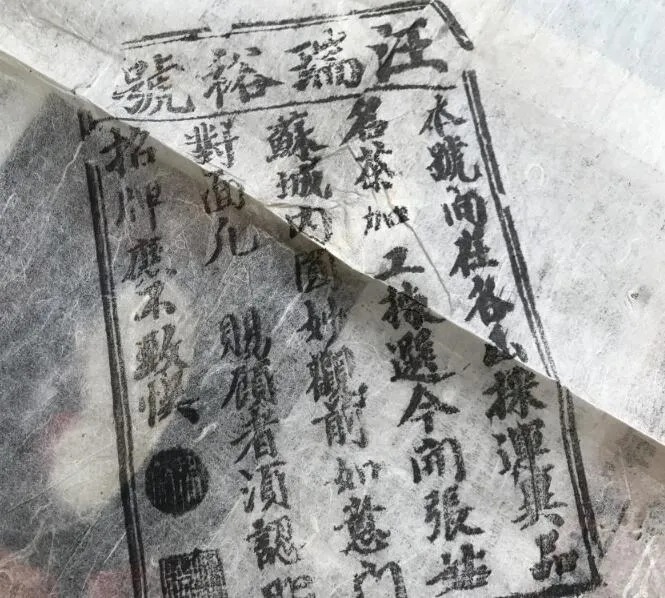 汪瑞裕號
本號向各山採真品
名茶加工揀選今開張姑
蘇城内圓妙觀前如意門
對面凡 賜顧者須認明
招牌庶不致悞